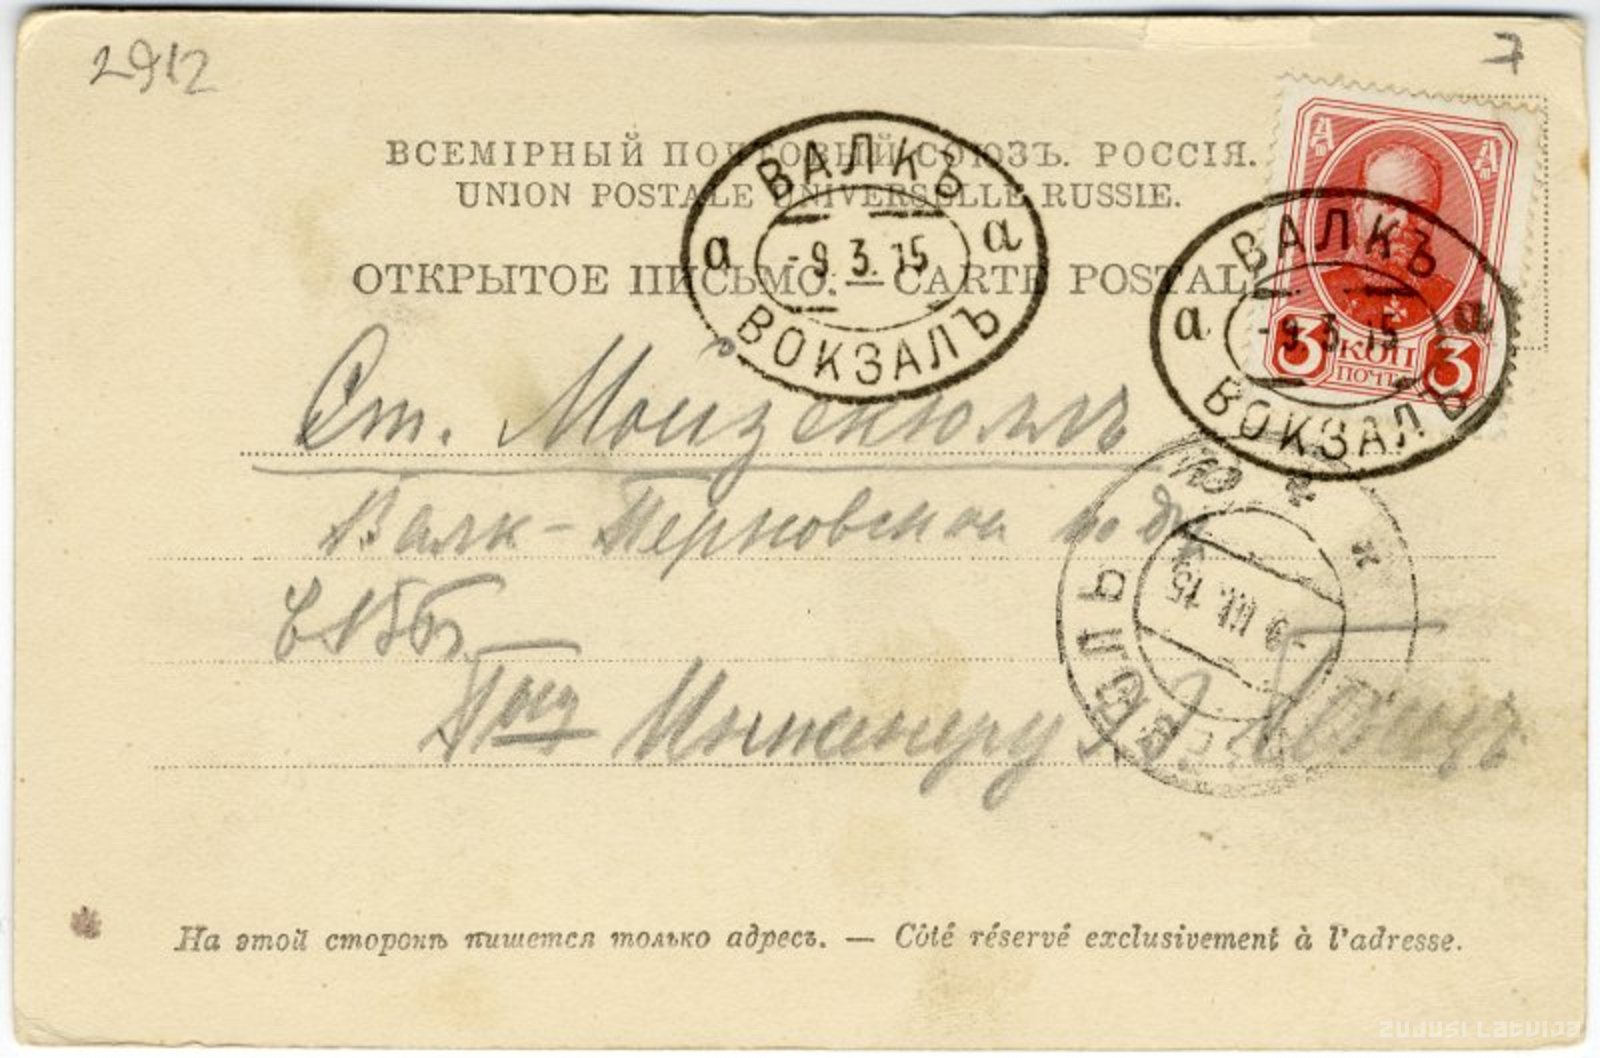 2912
7
ВСЕМІРНЫЙ ПОЧТОВЫЙ СОЮЗЪ. РОССІЯ.
UNION POSTALE UNIVERSELLE RUSSIE.
ОТКРЫТОЕ ПИСЬМО. — CARTE POSTAL
ВАЛКЪ
а -9.3.15 а
ВОКЗАЛЪ
3 КОП 3
ПОЧТ
ВАЛКЪ
а -9.3.15 а
ВОКЗАЛЪ
Ст. Мойзекюлль
Валк - Перновской
-9 III. 15
Инженеру
На этой сторонѣ пишется только адресъ. — Côté réservé exclusivement à l'adresse.
ZUDUSI LATVIJA